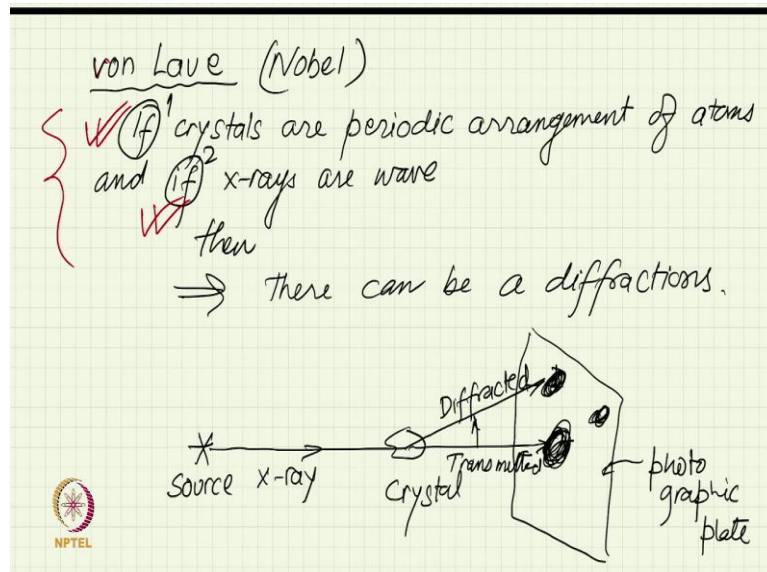 von Laue (Nobel)
If 1 crystals are periodic arrangement of atoms
and if 2 x-rays are wave
then
⇒ There can be a diffractions.
Diffracted
Transmitted
Source x-ray Crystal
photo
graphic
plate
NPTEL